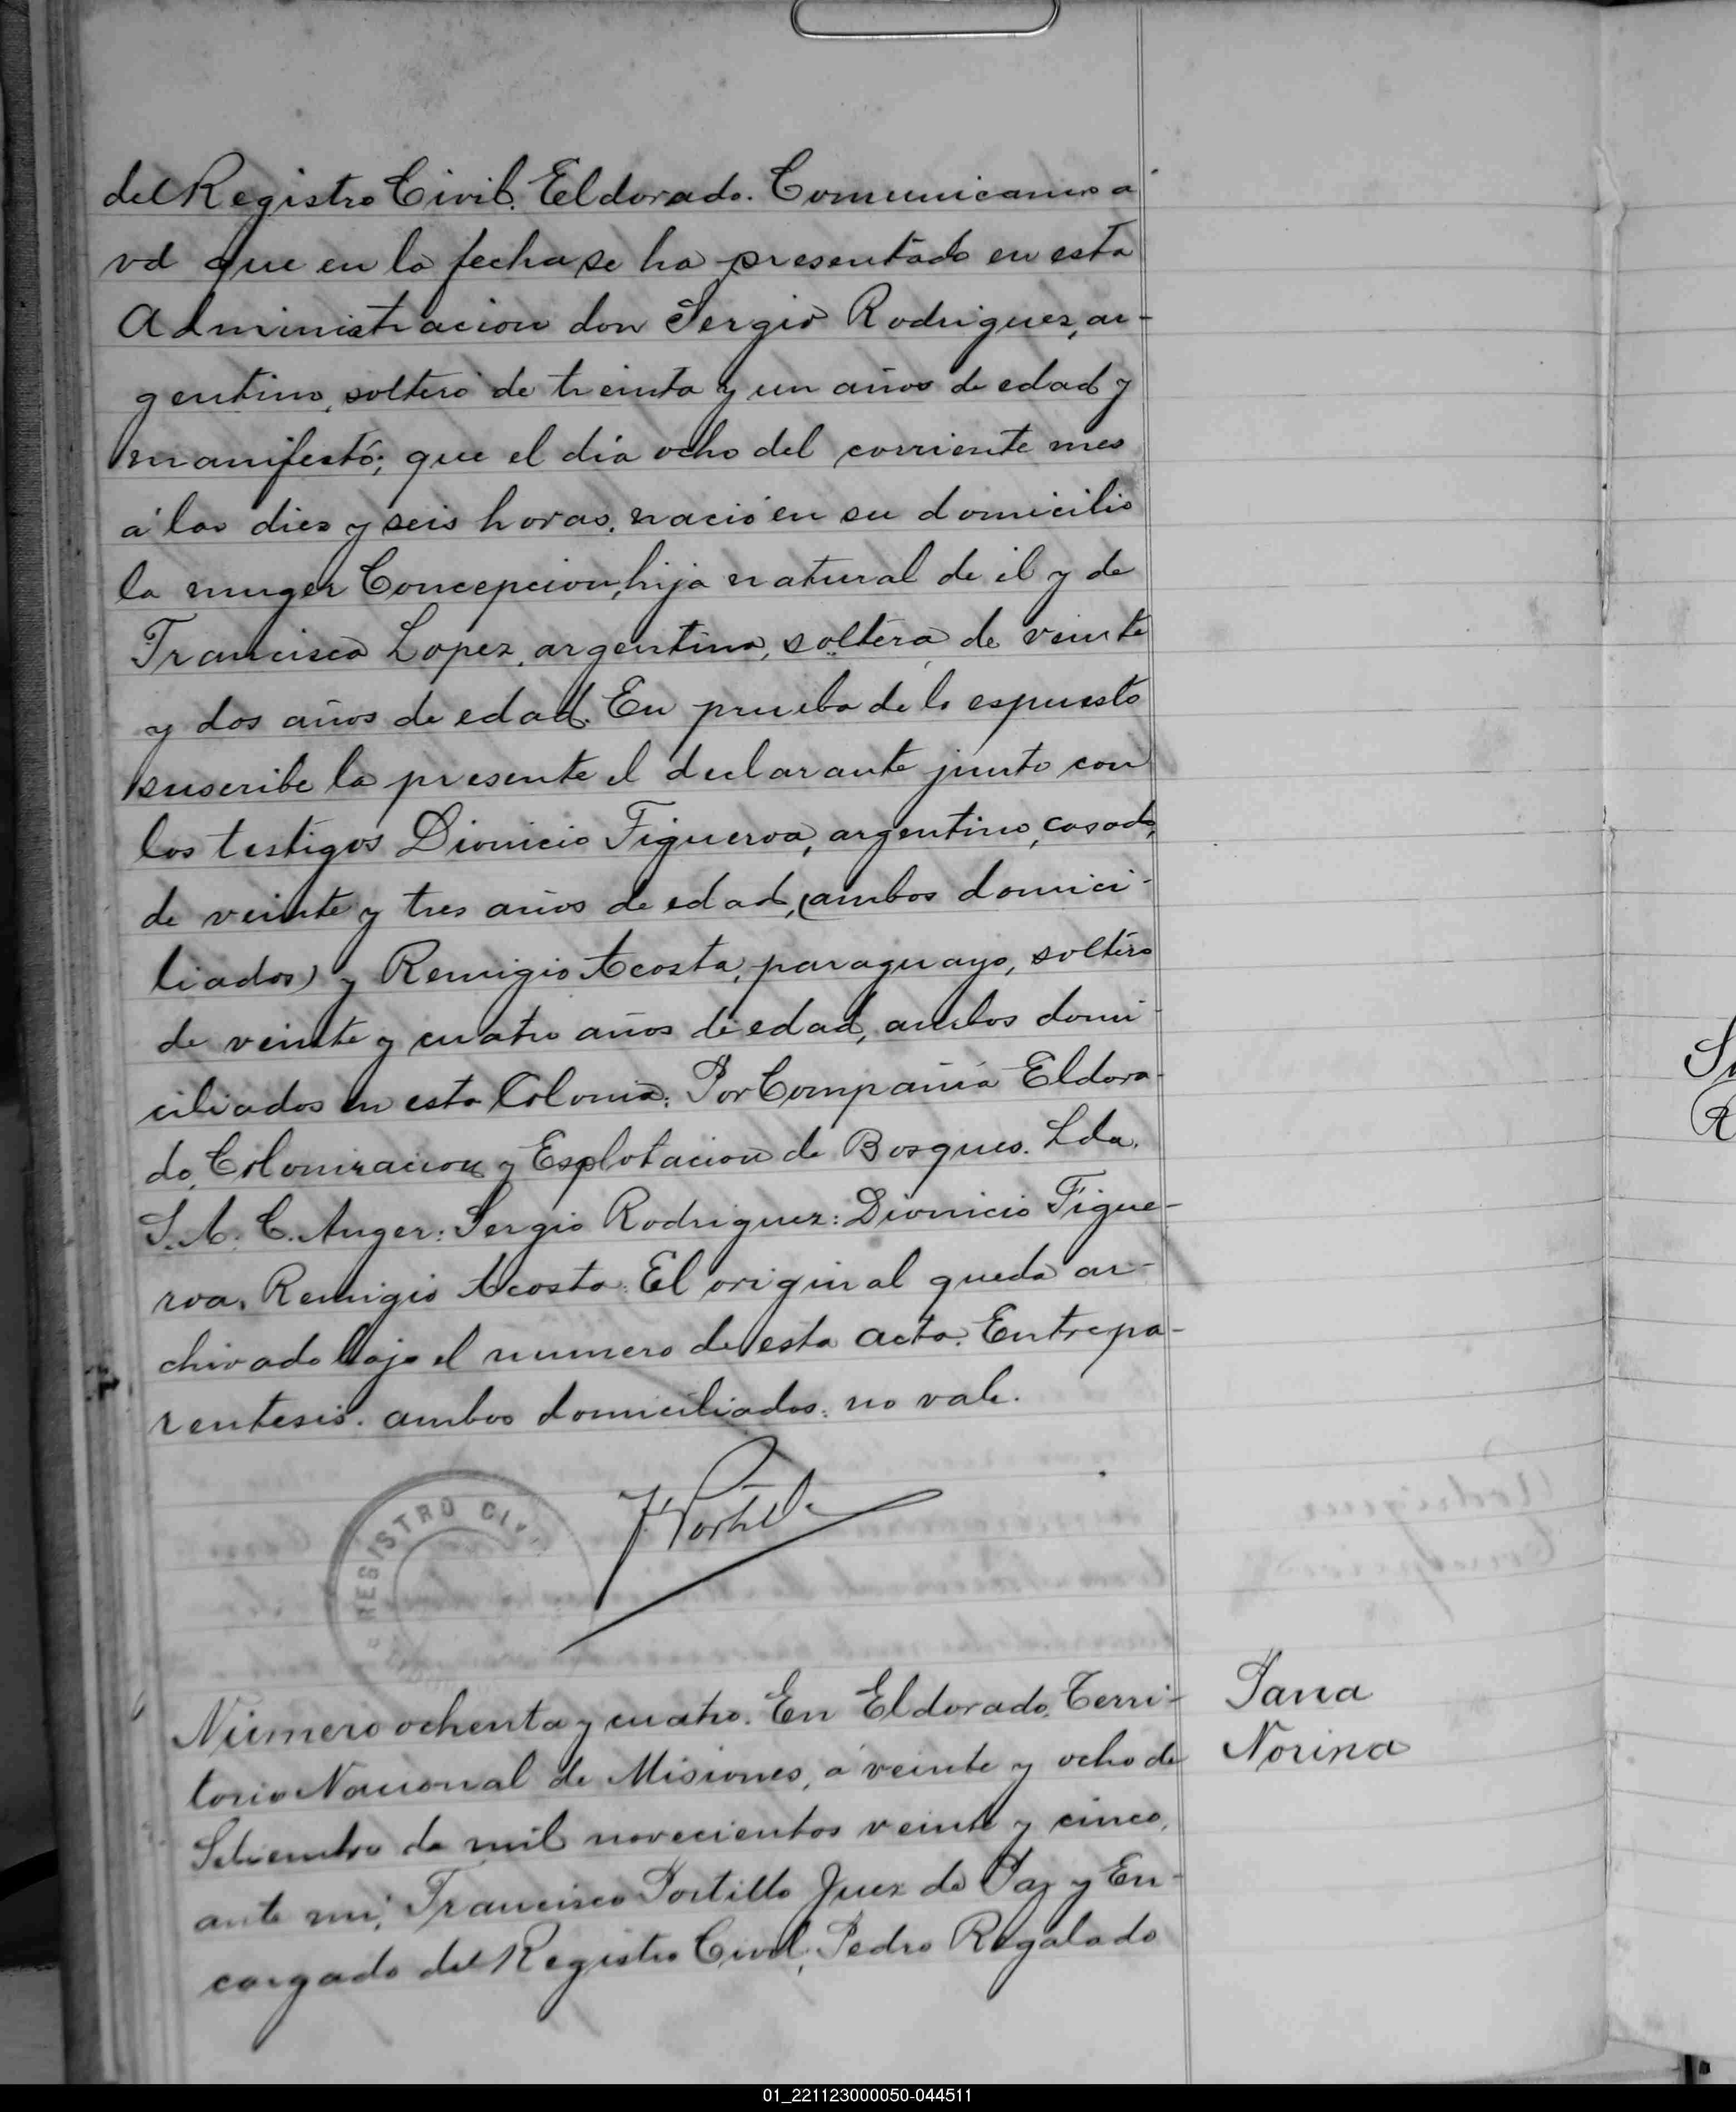 del Registro Civil. Eldorado. Comunicamos a
vd que en la fecha se ha presentado en esta
Administracion don Sergio Rodriguez, ar-
gentino, soltero de treinta y un años de edad y
manifestó; que el día ocho del corriente mes
á las diez y seis horas, nació en su domicilio
la muger Concepcion, hija natural de él y de
Francisca Lopez, argentina, soltera de veinte
y dos años de edad. En prueba de lo espuesto
suscribe la presente el declarante junto con
los testigos Dionicio Figueroa, argentino, casado,
de veinte y tres años de edad, (ambos domici-
liados) y Remigio Acosta, paraguayo, soltero
de veinte y cuatro años de edad, ambos domi-
ciliados en esta Colonia. Por Compañia Eldora-
do, Colonizacion y Esplotacion de Bosques. Lda.
S. A. C. Auger: Sergio Rodriguez: Dionicio Figue-
roa. Remigio Acosta. El original queda ar-
chivado bajo el numero de esta acta. Entrepa-
rentesis. ambos domiciliados: no vale.
REGISTRO CIVIL
F. Portillo
Número ochenta y cuatro. En Eldorado, Terri-
torio Nacional de Misiones, á veinte y ocho de
Setiembre de mil novecientos veinte y cinco,
ante mi, Francisco Portillo Juez de Paz y En-
cargado del Registro Civil, Pedro Regalado
Sana
Norina
01_221123000050-044511